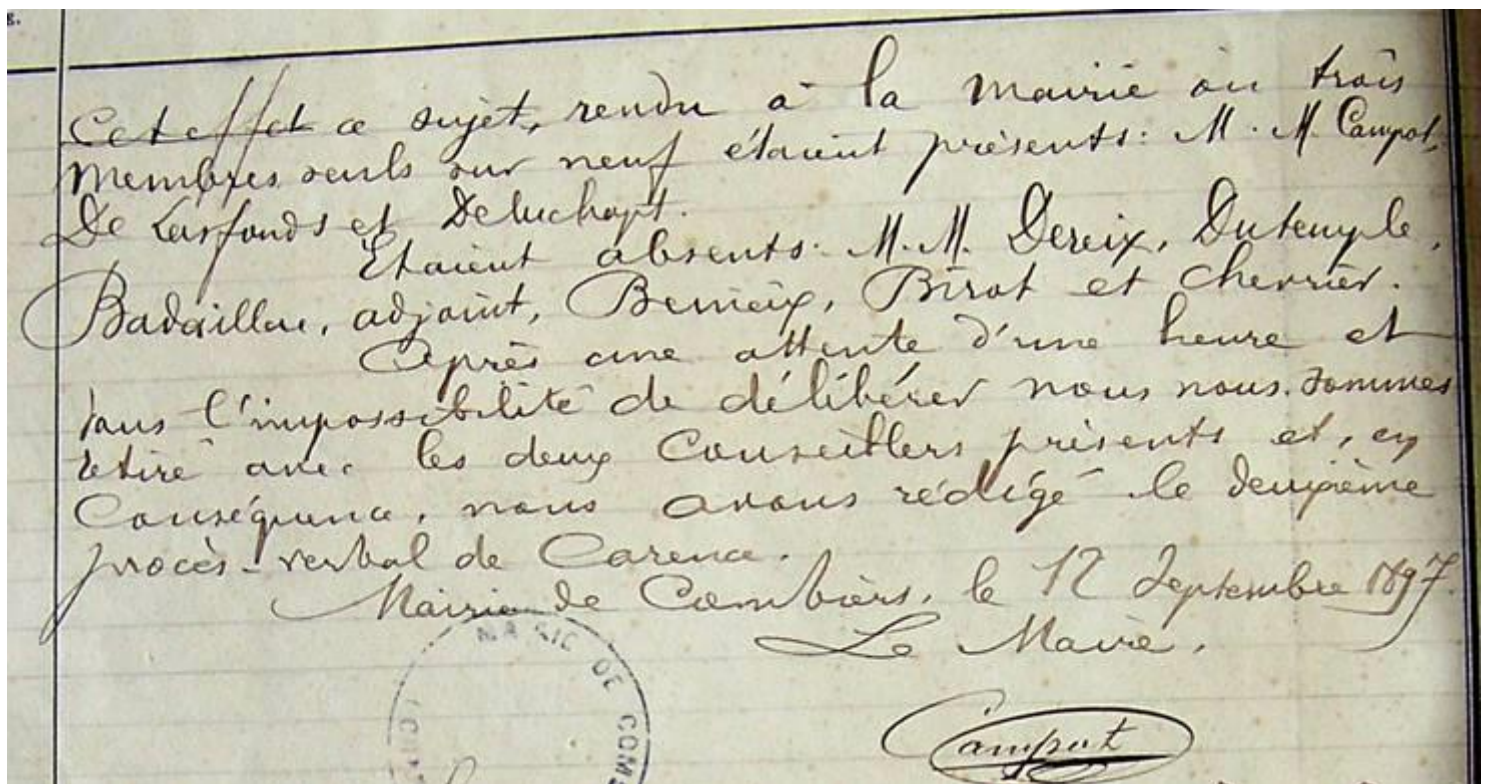 s.
Cet effet ce sujet, rendu à la mairie où trois
membres seuls sur neuf étaient présents: M. M. Campot,
De Lasfonds et Deluchapt.
Etaient absents: M. M. Dereix, Dutemple,
Badaillac, adjoint, Bernieix, Birot et Cherrier.
Après une attente d'une heure et
dans l'impossibilité de délibérer nous nous sommes
retiré avec les deux Conseillers présents et, en
Conséquence, nous avons rédigé le deuxième
procès-verbal de Carence.
Mairie de Combiers, le 12 Septembre 1897.
Le Maire,
MAIRIE DE COMB
Campot